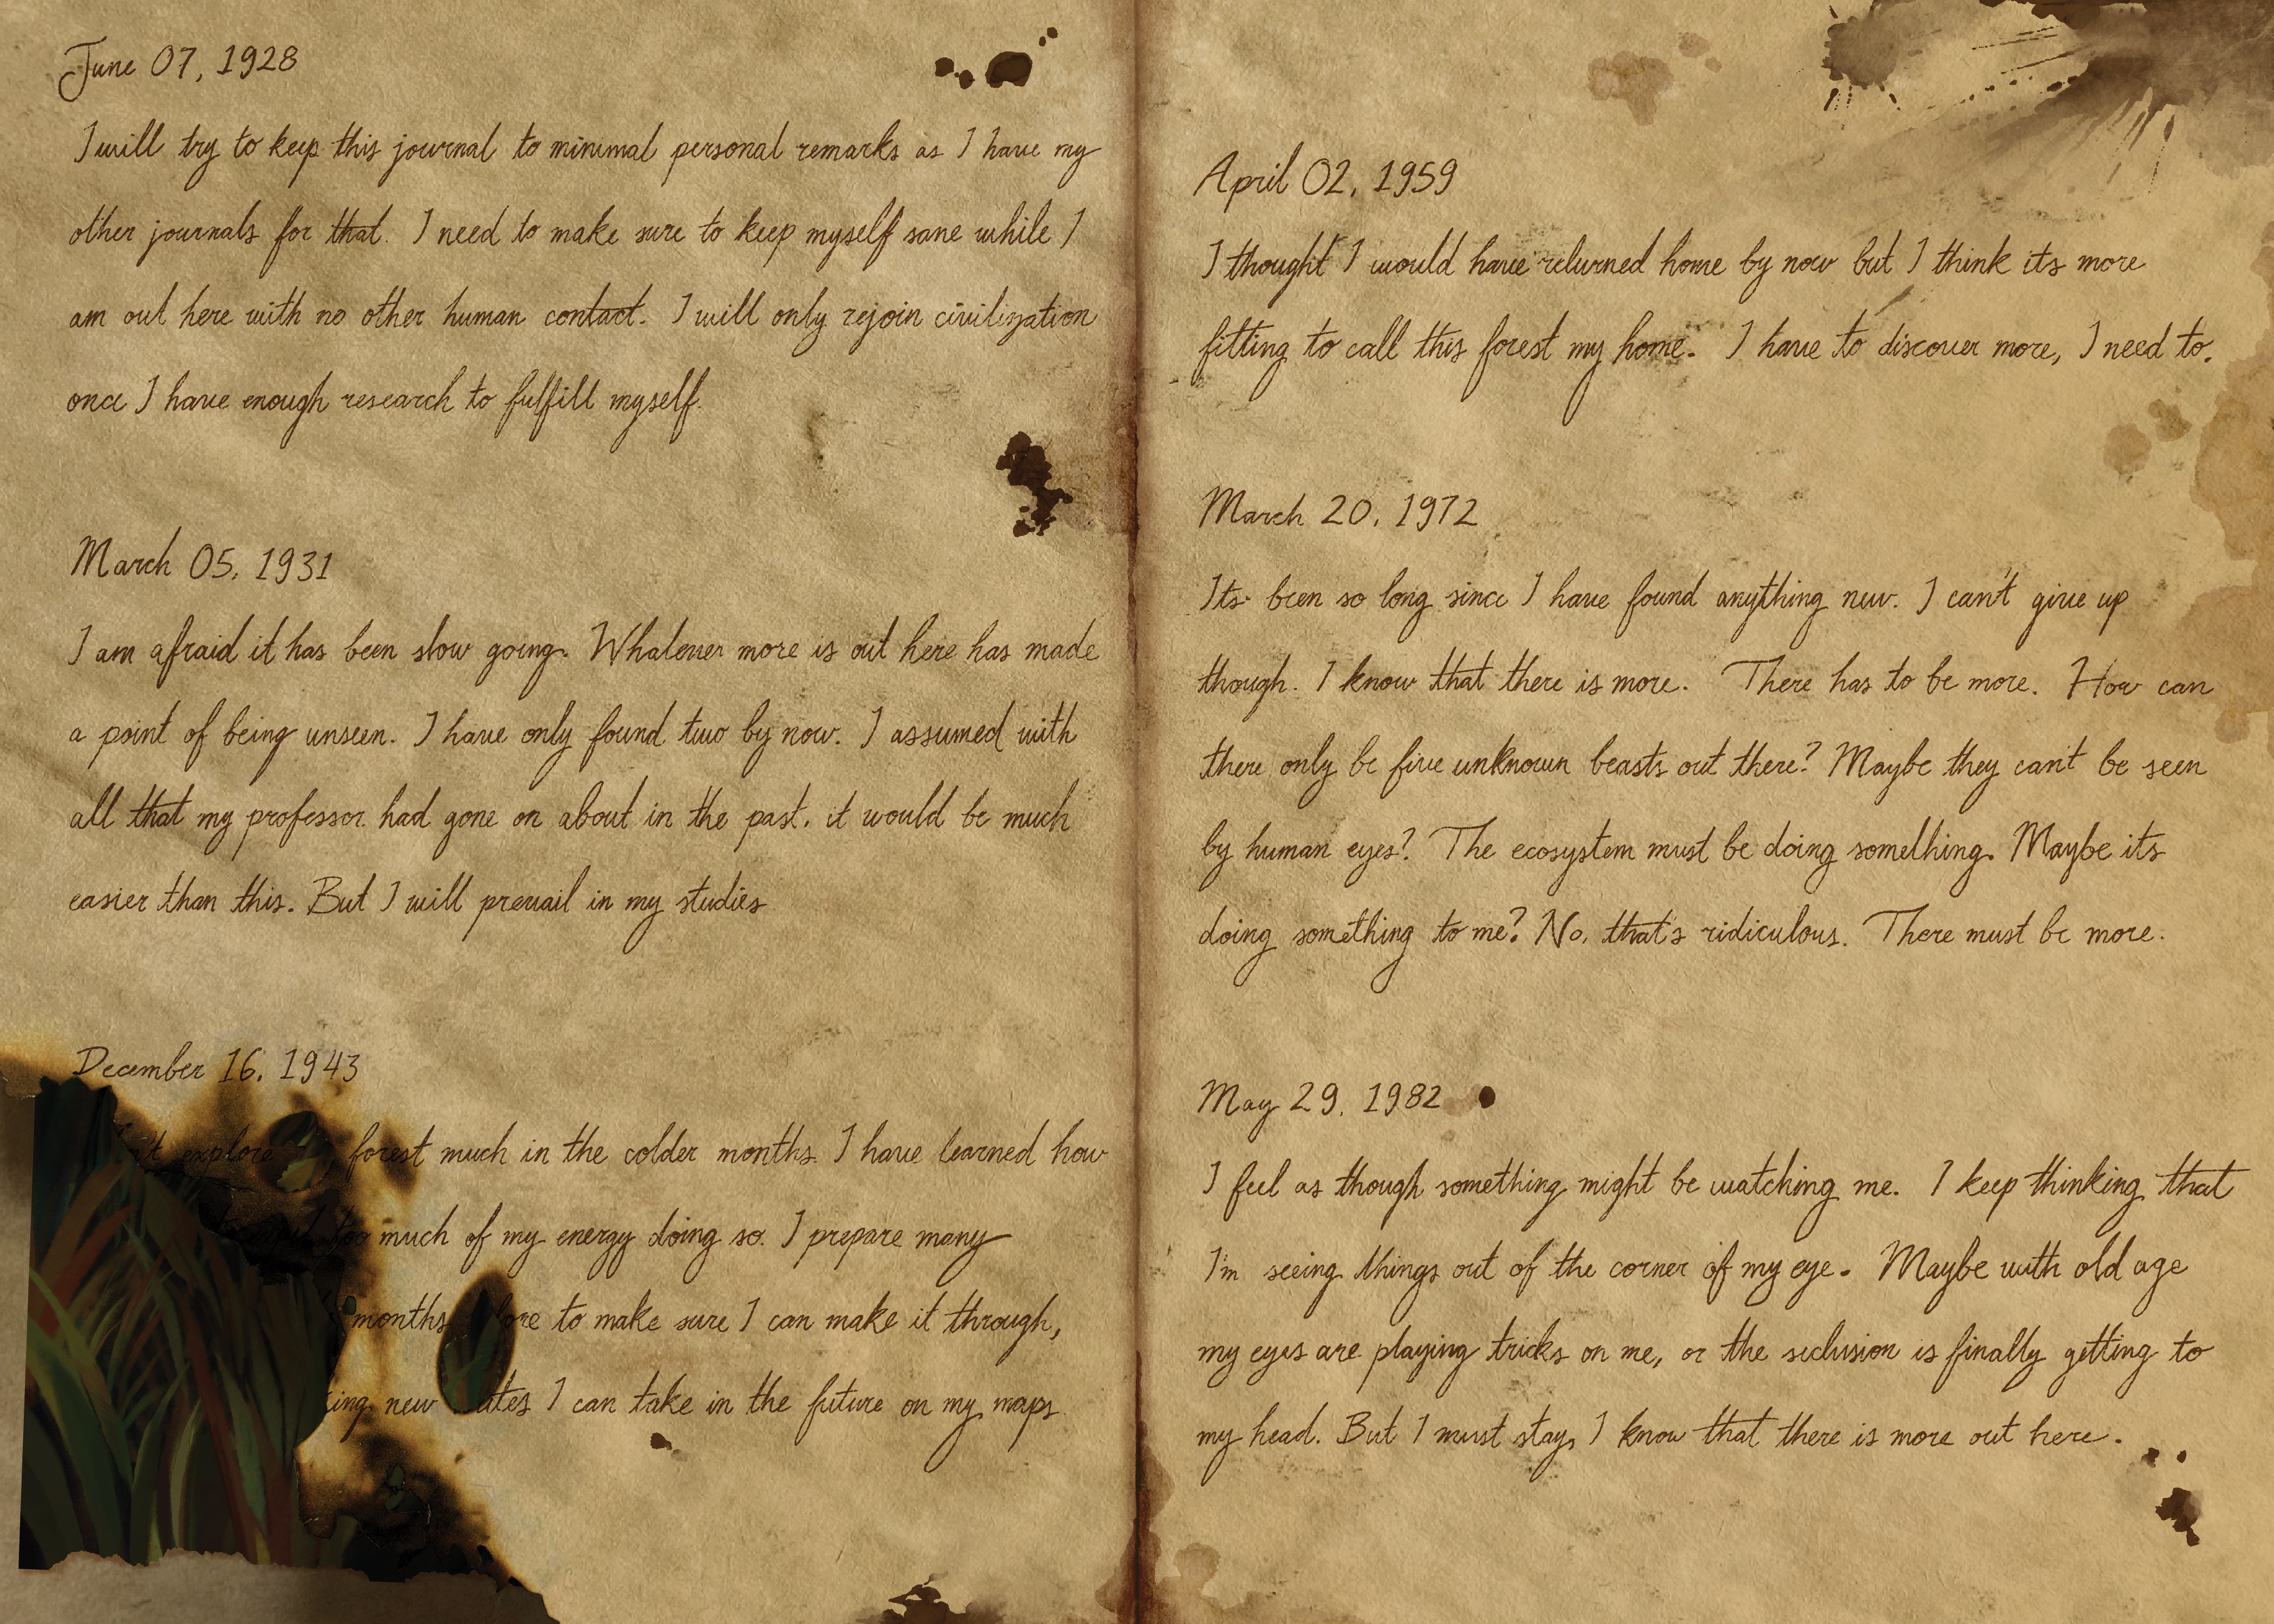 June 07, 1928
I will try to keep this journal to minimal personal remarks as I have my
other journals for that. I need to make sure to keep myself sane while I
am out here with no other human contact. I will only rejoin civilization
once I have enough research to fulfill myself.
March 05, 1931
I am afraid it has been slow going. Whatever more is out here has made
a point of being unseen. I have only found two by now. I assumed with
all that my professor had gone on about in the past, it would be much
easier than this. But I will prevail in my studies
December 16, 1943
explore forest much in the colder months. I have learned how
too much of my energy doing so. I prepare many
months to make sure I can make it through,
new I can take in the future on my maps.
April 02, 1959
I thought I would have returned home by now but I think its more
fitting to call this forest my home. I have to discover more, I need to.
March 20, 1972
Its been so long since I have found anything new. I can't give up
though. I know that there is more. There has to be more. How can
there only be five unknown beasts out there? Maybe they can't be seen
by human eyes? The ecosystem must be doing something. Maybe its
doing something to me? No, that's ridiculous. There must be more.
May 29, 1982
I feel as though something might be watching me. I keep thinking that
I'm seeing things out of the corner of my eye. Maybe with old age
my eyes are playing tricks on me, or the seclusion is finally getting to
my head. But I must stay, I know that there is more out here.